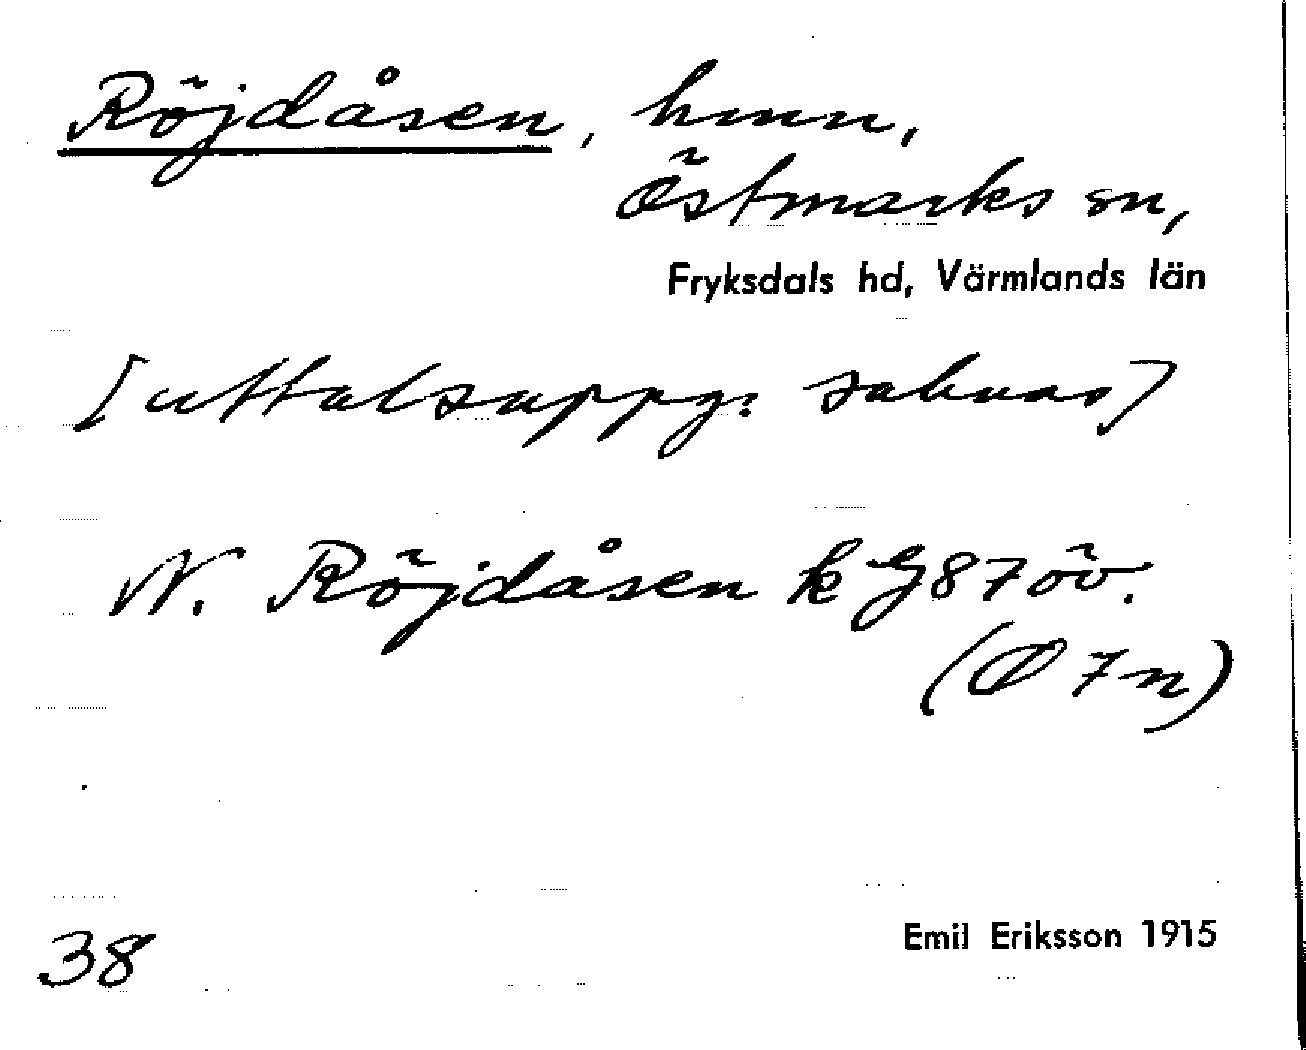 Röjdåsen, hmn,
Östmarks sn,
Fryksdals hd, Värmlands län
[uttalsuppg: saknas]
N. Röjdåsen k G87öv.
(Ø 7n)
38 Emil Eriksson 1915